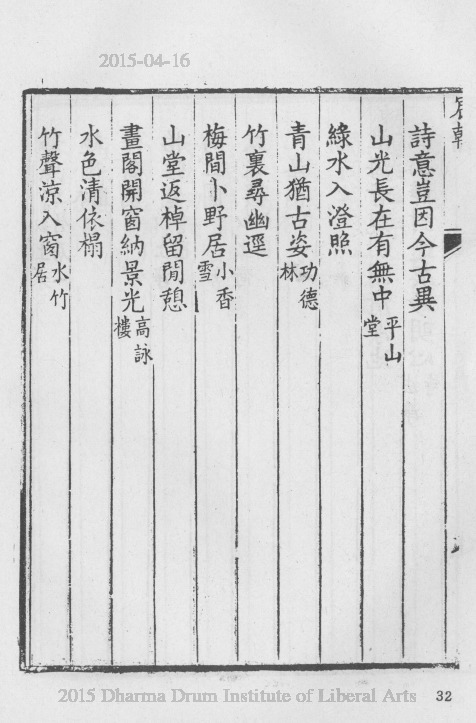 2015-04-16
宸翰
詩意豈因今古異
山光長在有無中平山堂
綠水入澄照
青山猶古姿功德林
竹裏尋幽逕
梅間卜野居小香雪
山堂返棹留閒憩
畫閣開窗納景光高詠樓
水色清依榻
竹聲涼入窗水竹居
2015 Dharma Drum Institute of Liberal Arts
32